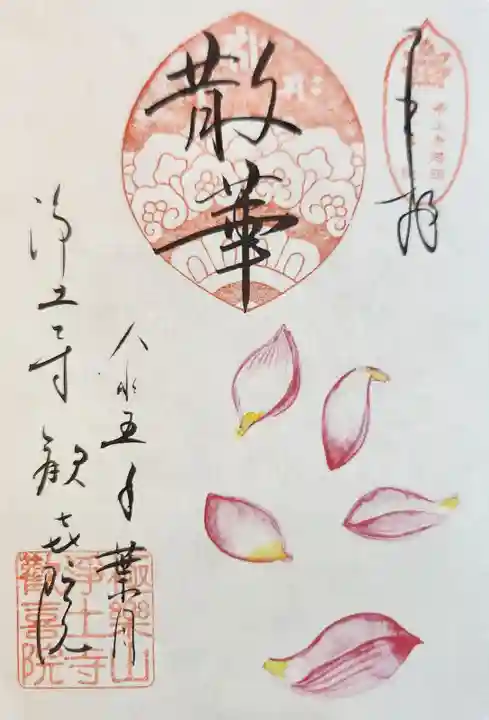 奉拝
散華
令和五年葉月
浄土寺 歓喜院
極樂山
淨土寺
歡喜院